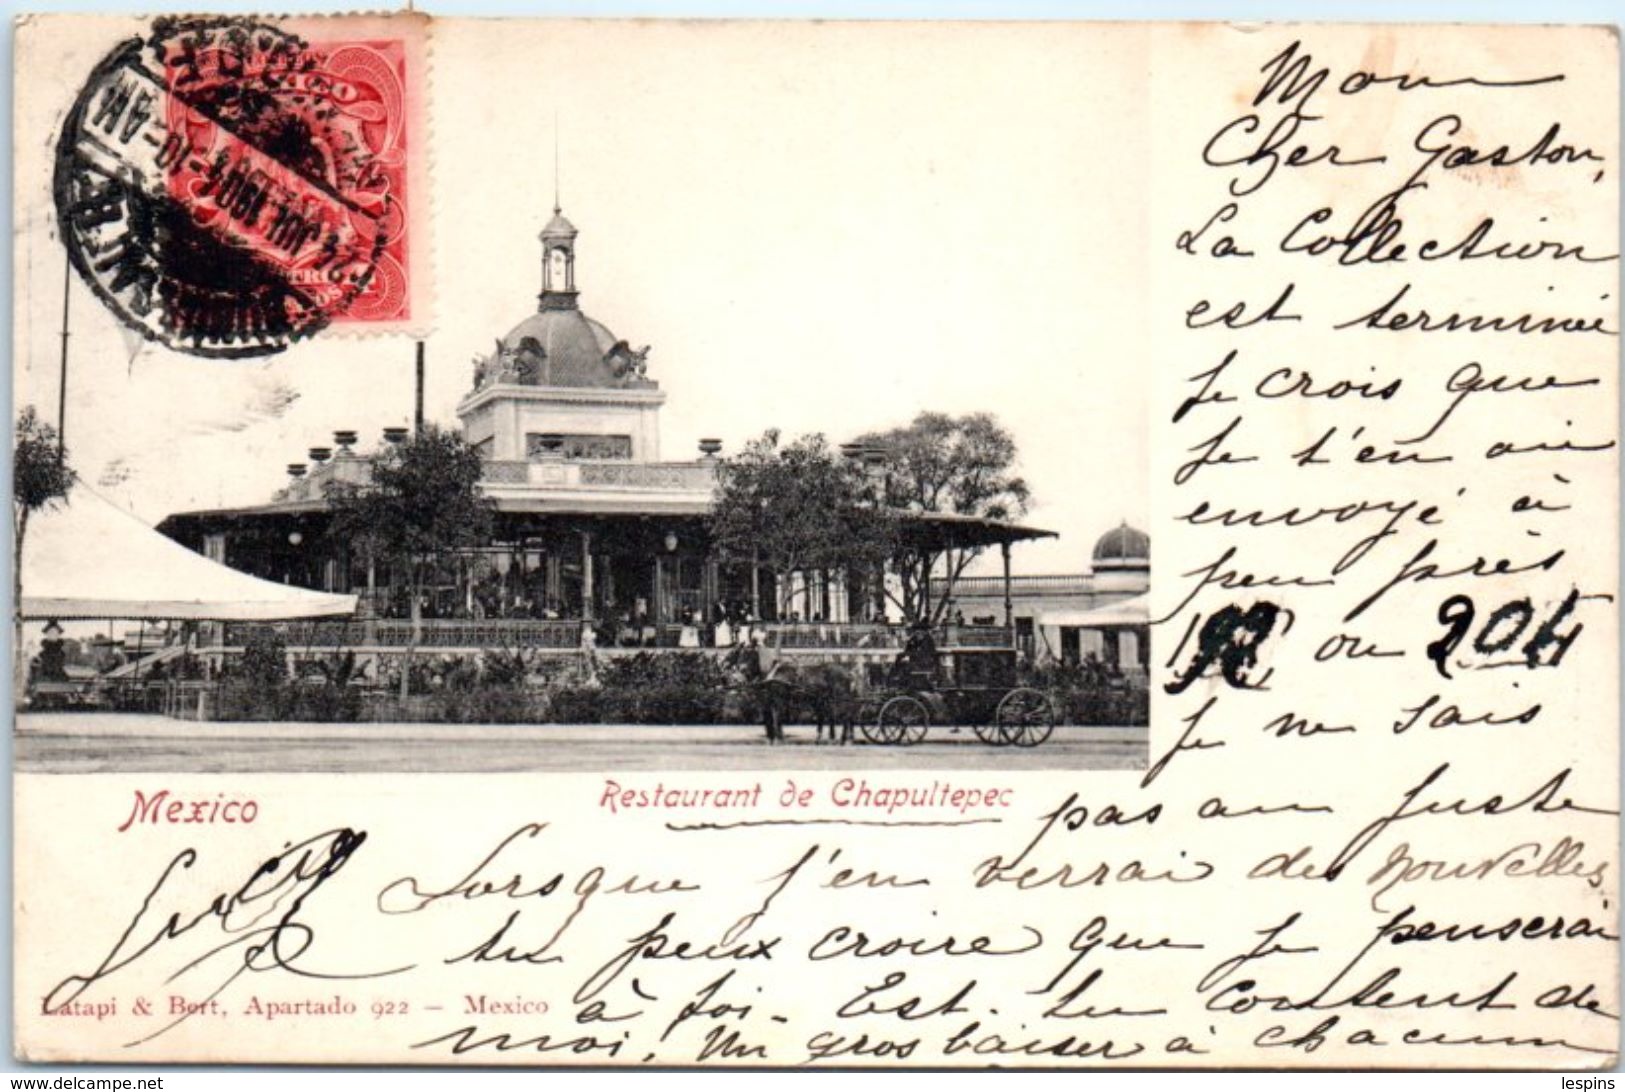 22 JUL 1904 -10-AM
Mon
Cher Gaston,
La Collection
est terminée
Je crois que
Je t'en ai
envoyé à
peu près
192 ou 204
Je ne sais
pas au juste
Mexico
Restaurant de Chapultepec
Lorsque j'en verrai des nouvelles
tu peux croire que je penserai
à toi. Est-tu content de
moi. Un gros baiser à chacun
Latapi & Bert, Apartado 922 – Mexico
www.delcampe.net
lespins_